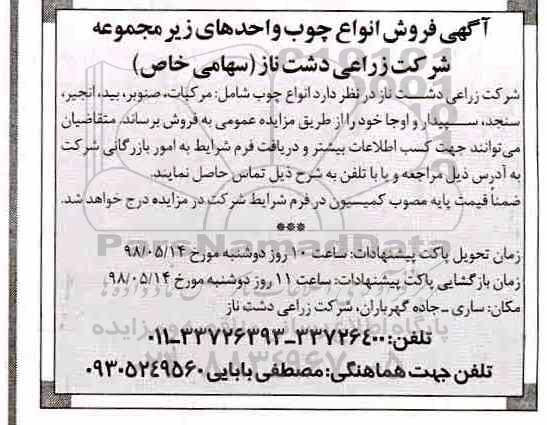 آگهی فروش انواع چوب واحدهای زیر مجموعه
شرکت زراعی دشت ناز (سهامی خاص)
شرکت زراعی دشت ناز در نظر دارد انواع چوب شامل: مرکبات، صنوبر، بید، انجیر،
سنجد، سپیدار و اوجا خود را از طریق مزایده عمومی به فروش برساند. متقاضیان
می‌توانند جهت کسب اطلاعات بیشتر و دریافت فرم شرایط به امور بازرگانی شرکت
به آدرس ذیل مراجعه و یا با تلفن به شرح ذیل تماس حاصل نمایند.
ضمناً قیمت پایه مصوب کمیسیون در فرم شرایط شرکت در مزایده درج خواهد شد.
***
زمان تحویل پاکت پیشنهادات: ساعت ۱۰ روز دوشنبه مورخ ۹۸/۰۵/۱۴
زمان بازگشایی پاکت پیشنهادات: ساعت ۱۱ روز دوشنبه مورخ ۹۸/۰۵/۱۴
مکان: ساری - جاده گهرباران، شرکت زراعی دشت ناز
تلفن: ۳۳۷۲۶۴۰۰-۳۳۷۲۶۳۹۳-۰۱۱
تلفن جهت هماهنگی: مصطفی بابایی ۰۹۳۰۵۲۴۹۵۶۰
ParsNamadData